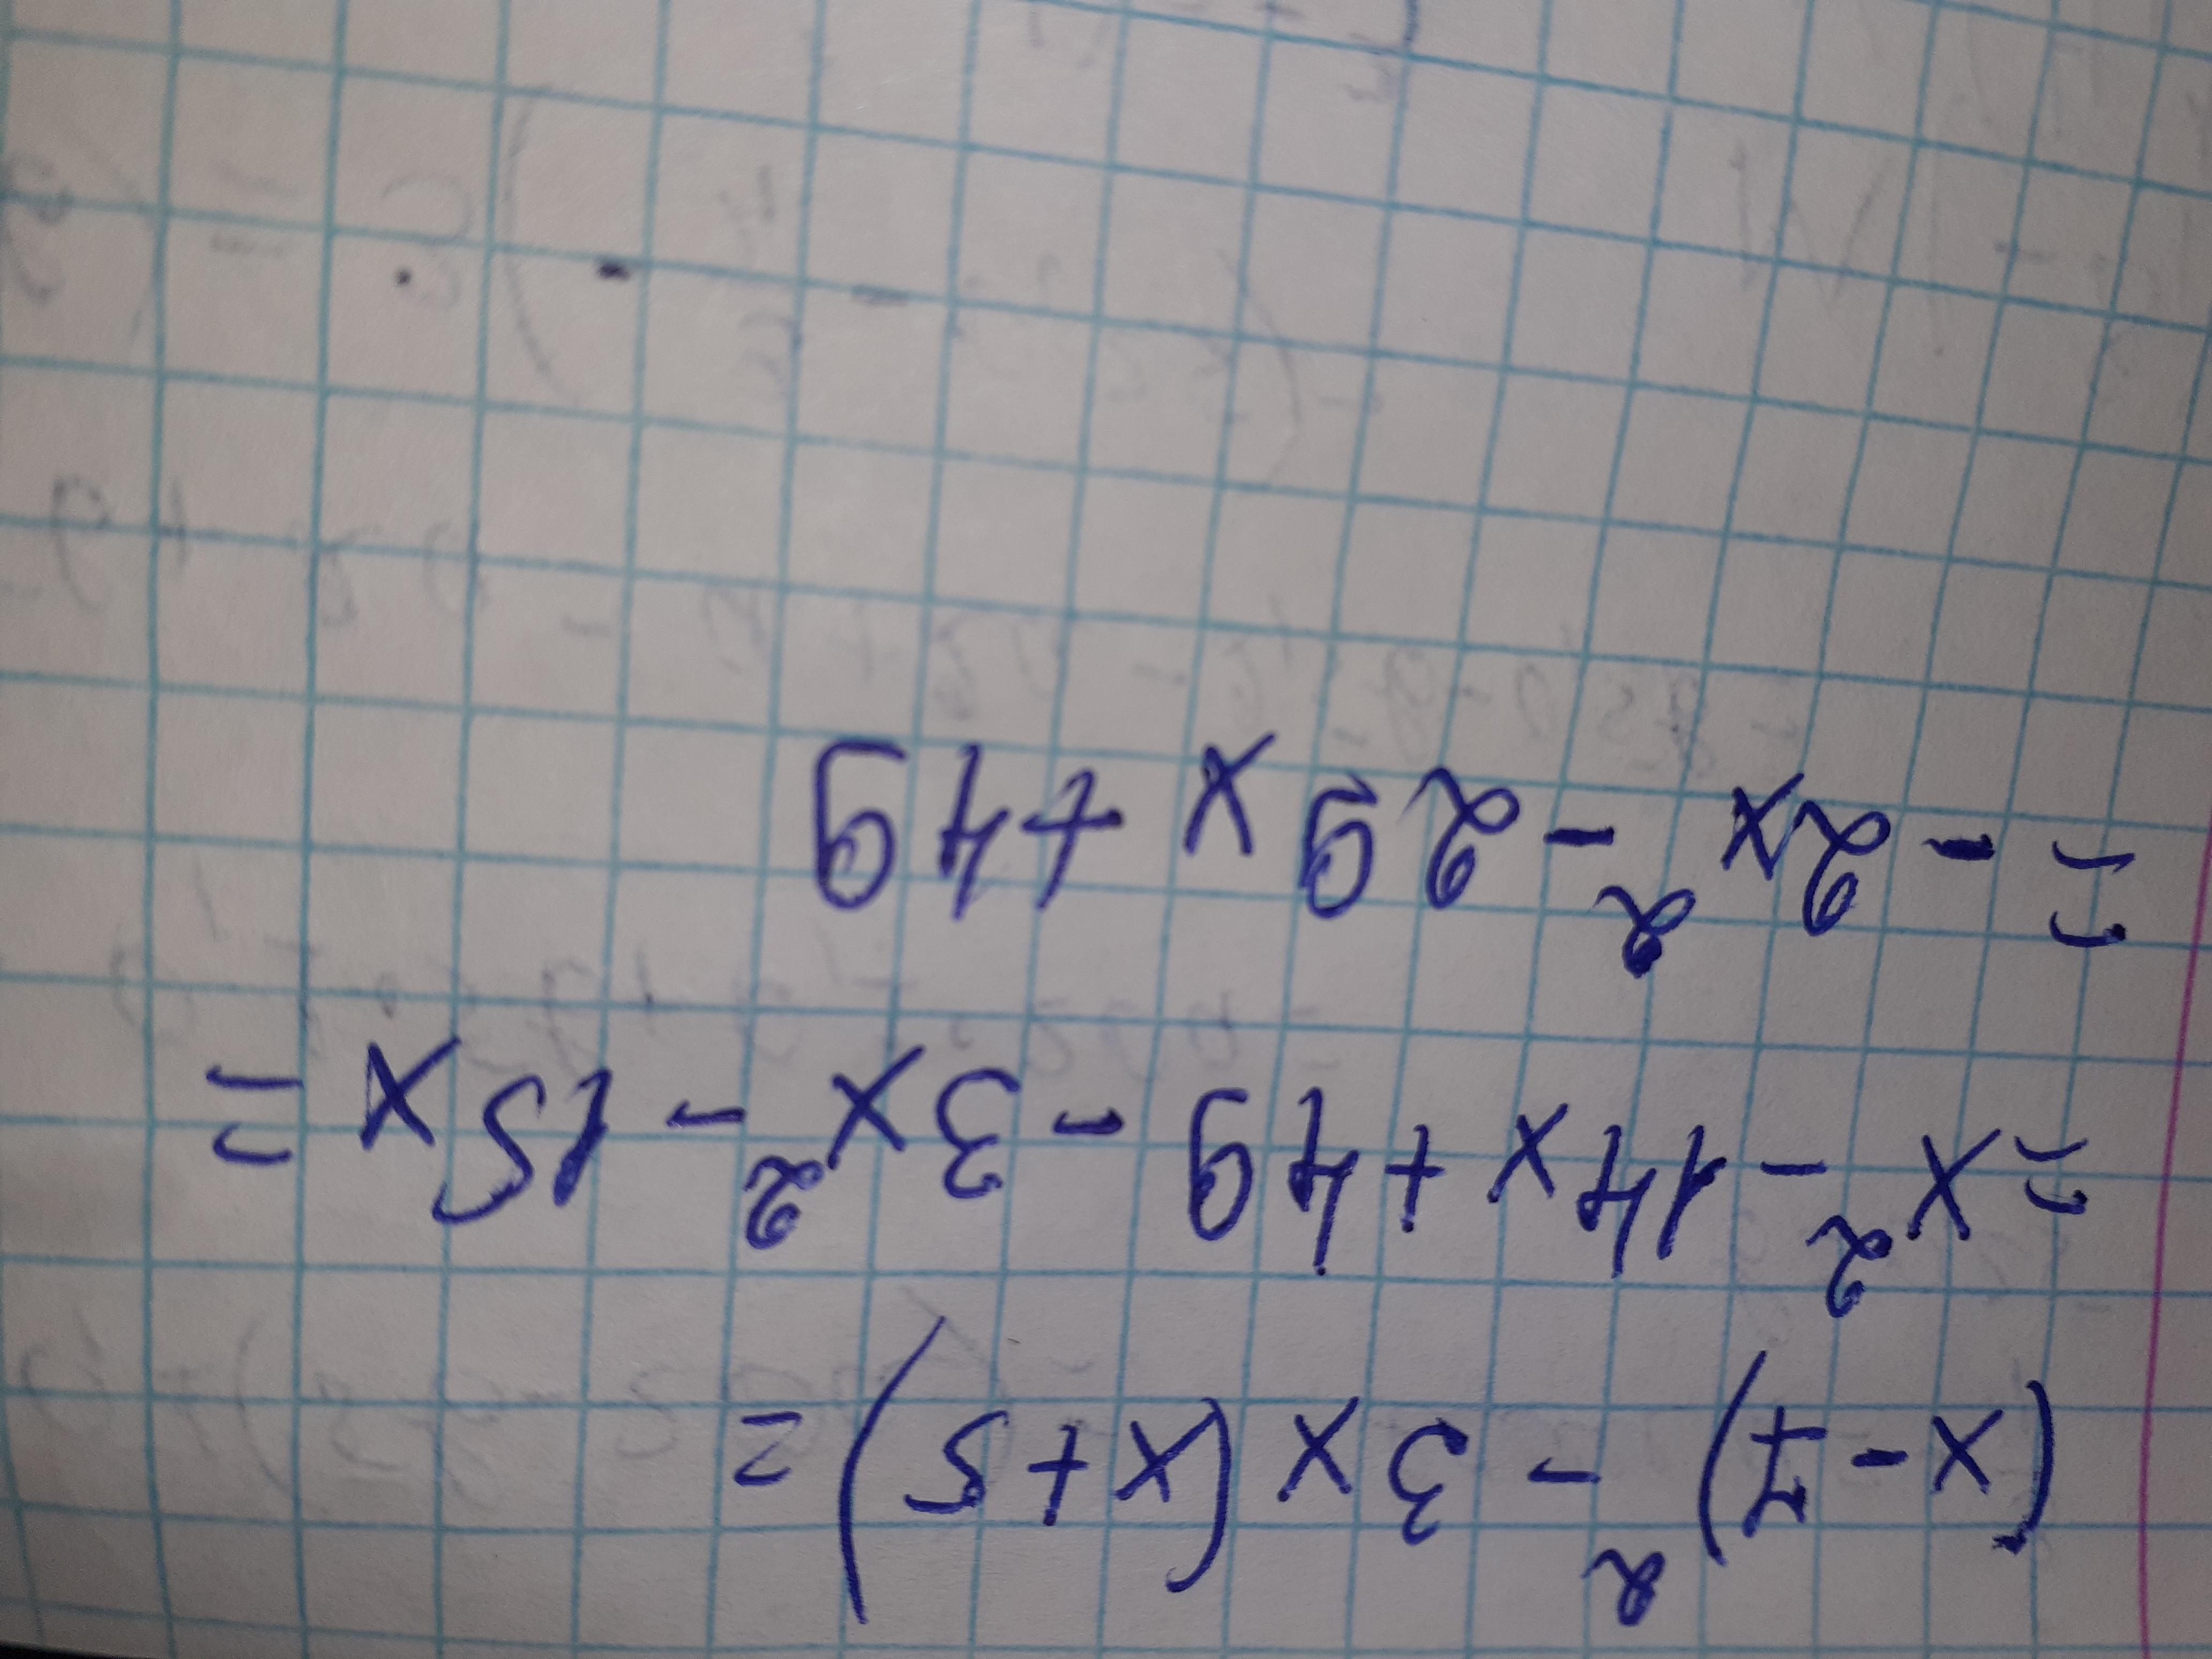 (x-7)² - 3x(x+5)=
=x² - 14x + 49 - 3x² - 15x =
= - 2x² - 29x + 49